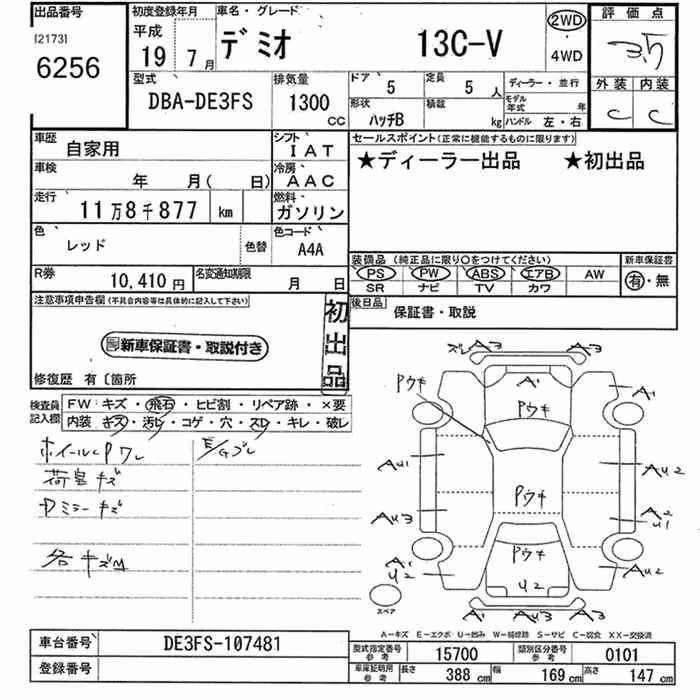 出品番号
[2173]
6256
初度登録年月
平成
19年 7月
車名・グレード
デミオ 13C-V
2WD
4WD
評価点
3.5
型式
DBA-DE3FS
排気量
1300 CC
ドア 5
定員 5人
ディーラー・並行
形状 ハッチB
積載 kg
モデル年式 年
ハンドル 左・右
外装 内装
C C
車歴 自家用
シフト IAT
車検 年 月( 日)
冷房 AAC
走行 11万8千877 km
燃料 ガソリン
色 レッド 色替
色コード A4A
R券 10,410円
名変通知期限 月 日
セールスポイント(正常に機能するものに限ります)
★ディーラー出品 ★初出品
装備品 (純正品に限り○をつけてください)
PS PW ABS エアB AW
SR ナビ TV カワ
新車保証書
有・無
後日品
保証書・取説
注意事項申告欄(不具合内容等は具体的に記入して下さい)
新車保証書・取説付き
初出品
修復歴 有〔箇所
検査員記入欄
FW: キズ・飛石・ヒビ割・リペア跡・×要
内装: キズ・汚レ・コゲ・穴・スレ・キレ・破レ
ホイールCPワレ
E/Gブレ
荷室キズ
Dミラーキズ
各キズM
ズレ A3 A3
Pウキ
A1 A1
Pウキ
AU1 AU2
Pウキ
AU3 A2 U1
A1 U2
Pウキ
AU2
U2
A1 AU3 A3
スペア
A-キズ E-エクボ U-凹み W-補修跡 S-サビ C-腐食 XX-交換済
車台番号 DE3FS-107481
登録番号
型式指定番号 参考 15700
類別区分番号 参考 0101
車庫証明用 参考 長さ 388 cm 幅 169 cm 高さ 147 cm